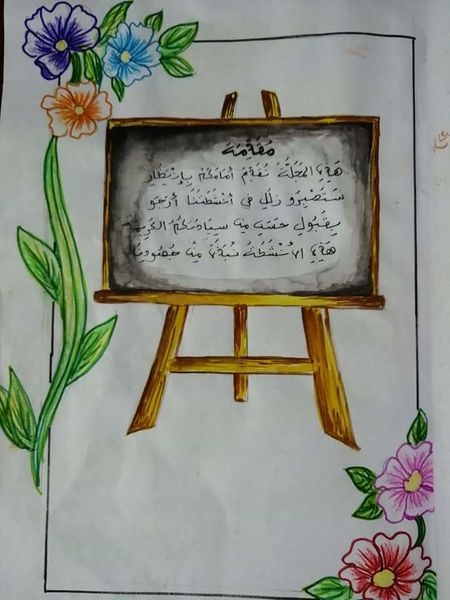 مُقَدِّمَة
هَذِهِ المَجَلَّةُ نُقَدِّمُ أَمَامَكُمْ بِإِنْتِظَارِ
ذَلِكَ فِي أَنْشِطَتِنَا أَرْجُو
بِقَبُولٍ حَسَنٍ مِنْ سِيَادَتِكُمُ الكَرِيمَة
هَذِهِ الأَنْشَطَةُ نُبْذَةٌ مِنْ